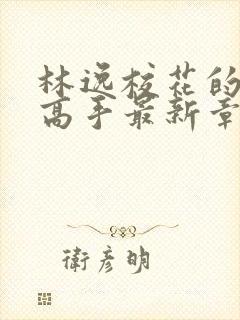 林逸校花的
高手最新章
衛彥明